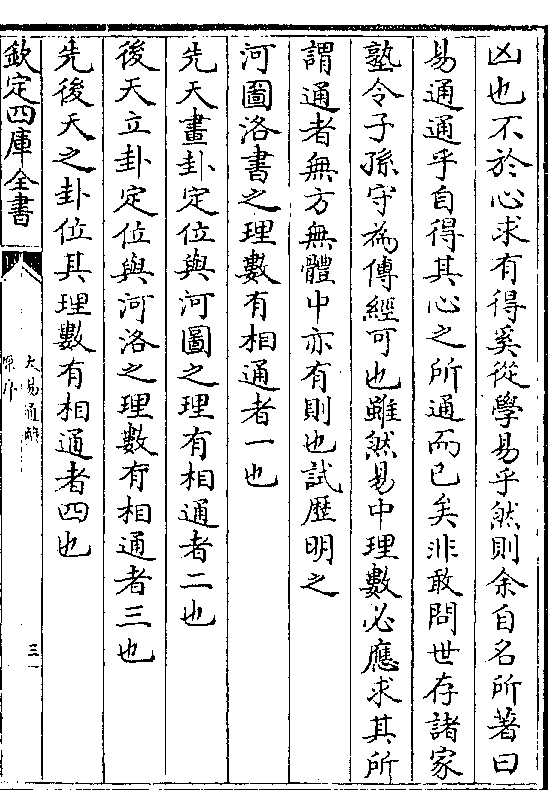 凶也不於心求有得奚從學易乎然則余自名所著曰
易通通乎自得其心之所通而已矣非敢問世存諸家
塾令子孫守為傳經可也雖然易中理數必應求其所
謂通者無方無體中亦有則也試歷明之
河圖洛書之理數有相通者一也
先天畫卦定位與河圖之理有相通者二也
後天立卦定位與河洛之理數有相通者三也
先後天之卦位其理數有相通者四也
欽定四庫全書
大易通解
原序
三